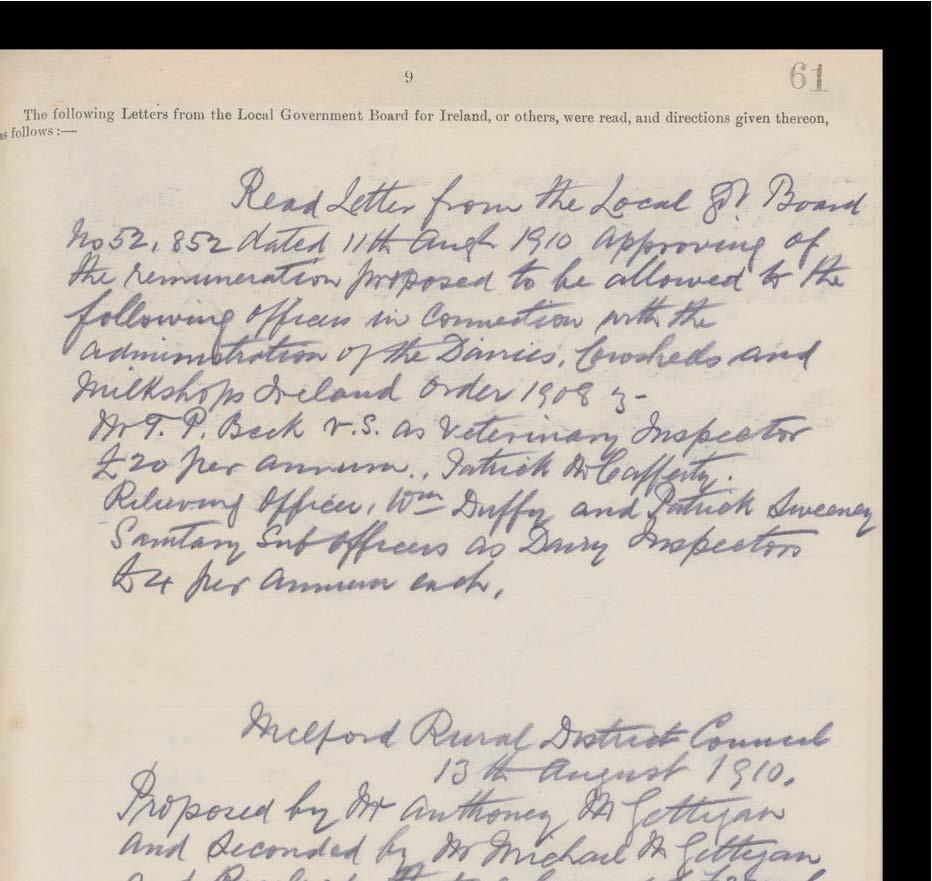 9
61
The following Letters from the Local Government Board for Ireland, or others, were read, and directions given thereon,
as follows :—
Read Letter from the Local Gvt. Board
No 52,852 dated 11th Augt 1910 approving of
the remuneration proposed to be allowed to the
following officers in Connection with the
administration of the Dairies, Cowsheds and
Milkshops Ireland Order 1908 :-
Mr T. P. Beck V.S. as Veterinary Inspector
£20 per annum., Patrick McCafferty.
Relieving Officer, Wm Duffy and Patrick Sweeney
Sanitary Sub Officers as Dairy Inspectors
£4 per annum each,
Milford Rural District Council
13th August 1910.
Proposed by Mr Anthoney McGettigan
and Seconded by Mr Michael McGettigan
and